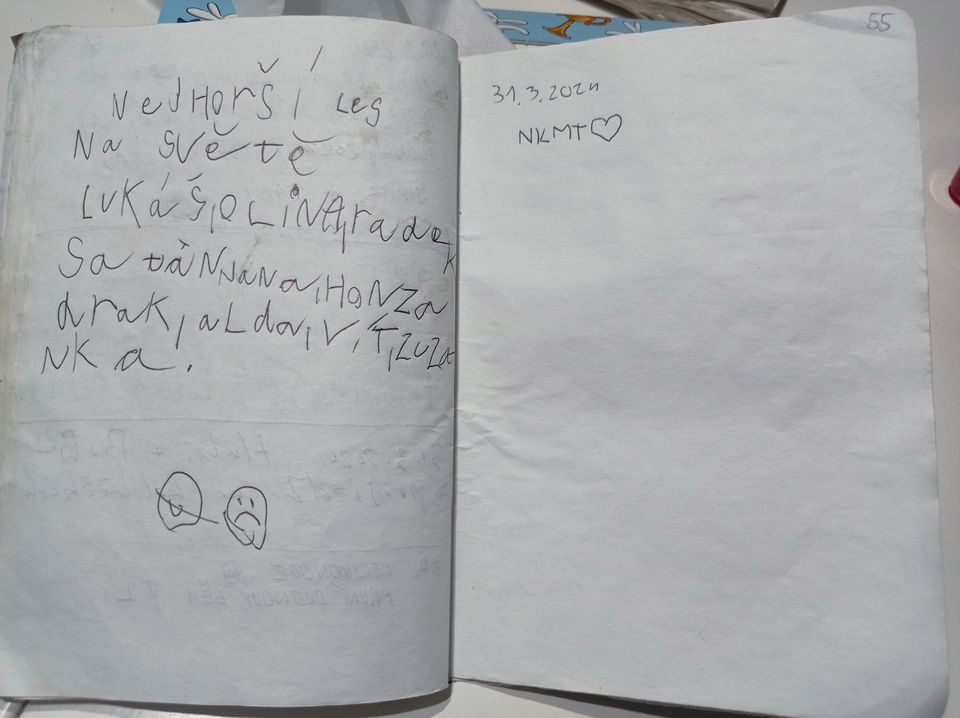 NeJHorŠí Leg
Na Světě
LuKáŠ,OLiNA,radek
SatáN,NaNa,HoNZa
draK,aLda,V,íT,ZuZa
NKa.
55
31.3.2024
NKMT♡